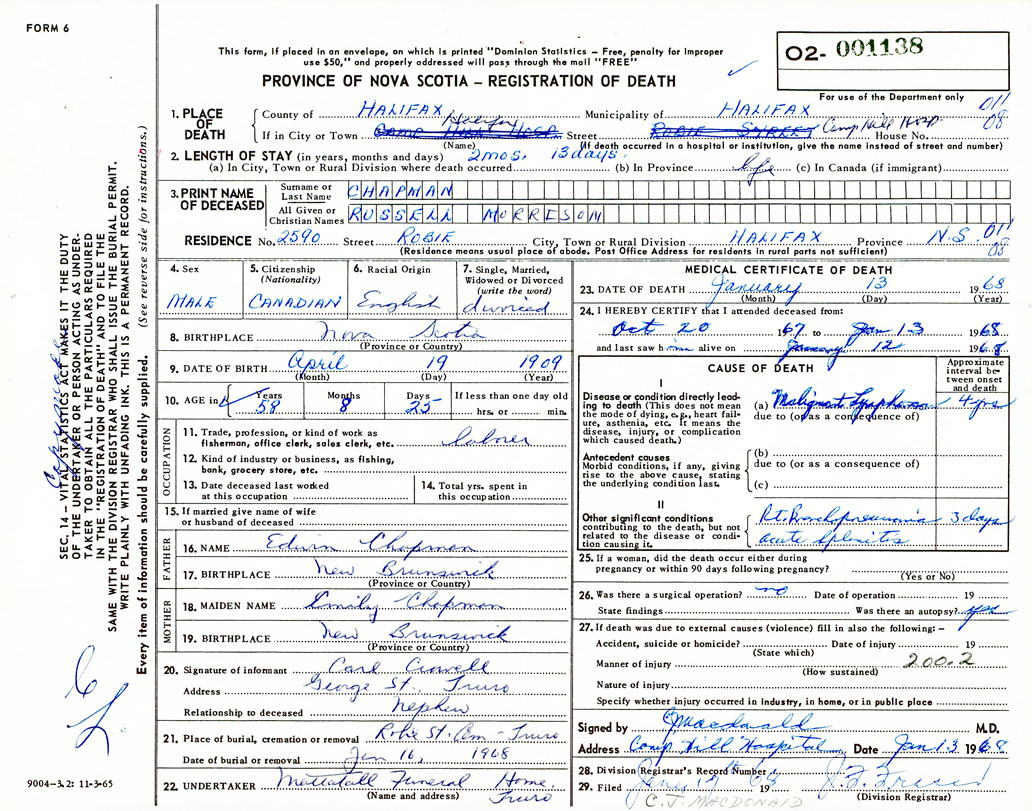 FORM 6
This form, if placed in an envelope, on which is printed "Dominion Statistics – Free, penalty for improper
use $50," and properly addressed will pass through the mail "FREE"
PROVINCE OF NOVA SCOTIA – REGISTRATION OF DEATH
O2- 001138
For use of the Department only
011
08
1. PLACE OF DEATH
County of HALIFAX Municipality of HALIFAX
If in City or Town CAMP HILL HOSP Halifax Street ROBIE STREET Camp Hill Hosp. House No.
(Name) (If death occurred in a hospital or institution, give the name instead of street and number)
2. LENGTH OF STAY (in years, months and days) 2 mos. 13 days.
(a) In City, Town or Rural Division where death occurred (b) In Province life (c) In Canada (if immigrant)
3. PRINT NAME OF DECEASED
Surname or Last Name CHAPMAN
All Given or Christian Names RUSSELL MORRISON
RESIDENCE No. 2590 Street ROBIE City, Town or Rural Division HALIFAX Province N.S. 011
08
(Residence means usual place of abode. Post Office Address for residents in rural parts not sufficient)
4. Sex
MALE
5. Citizenship
(Nationality)
CANADIAN
6. Racial Origin
English
7. Single, Married,
Widowed or Divorced
(write the word)
divorced
8. BIRTHPLACE Nova Scotia
(Province or Country)
9. DATE OF BIRTH April 19 1909
(Month) (Day) (Year)
10. AGE in Years Months Days If less than one day old
58 8 25 hrs. or min.
OCCUPATION
11. Trade, profession, or kind of work as
fisherman, office clerk, sales clerk, etc. labner
12. Kind of industry or business, as fishing,
bank, grocery store, etc.
13. Date deceased last worked
at this occupation
14. Total yrs. spent in
this occupation
15. If married give name of wife
or husband of deceased
FATHER
16. NAME Edwin Chapman
17. BIRTHPLACE New Brunswick
(Province or Country)
MOTHER
18. MAIDEN NAME Emily Chapman
19. BIRTHPLACE New Brunswick
(Province or Country)
20. Signature of informant Carl Crowell
Address George St. Truro
Relationship to deceased nephew
21. Place of burial, cremation or removal Robie St. Cem – Truro
Date of burial or removal Jan 16, 1968
22. UNDERTAKER Mattatall Funeral Home
Truro
(Name and address)
MEDICAL CERTIFICATE OF DEATH
23. DATE OF DEATH January 13 1968
(Month) (Day) (Year)
24. I HEREBY CERTIFY that I attended deceased from:
Oct 20 1967 to Jan 13 1968
and last saw him alive on January 12 1968
CAUSE OF DEATH
Approximate interval between onset and death
I
Disease or condition directly leading to death (This does not mean the mode of dying, e.g., heart failure, asthenia, etc. It means the disease, injury, or complication which caused death.)
(a) Malignant Lymphoma 4 yrs
due to (or as a consequence of)
Antecedent causes
Morbid conditions, if any, giving rise to the above cause, stating the underlying condition last.
(b)
due to (or as a consequence of)
(c)
II
Other significant conditions
contributing to the death, but not related to the disease or condition causing it.
Rt. Bronchopneumonia 3 days
acute splenitis
25. If a woman, did the death occur either during
pregnancy or within 90 days following pregnancy?
(Yes or No)
26. Was there a surgical operation? no Date of operation 19
State findings Was there an autopsy? yes
27. If death was due to external causes (violence) fill in also the following: –
Accident, suicide or homicide? Date of injury 19
(State which)
Manner of injury 200.2
(How sustained)
Nature of injury
Specify whether injury occurred in industry, in home, or in public place
Signed by C Macdonald M.D.
Address Camp Hill Hospital Date Jan 13 1968
28. Division Registrar's Record Number
29. Filed 19
(Division Registrar)
C. J. MACDONALD
SEC. 14 – VITAL STATISTICS ACT MAKES IT THE DUTY
OF THE UNDERTAKER OR PERSON ACTING AS UNDER-
TAKER TO OBTAIN ALL THE PARTICULARS REQUIRED
IN THE "REGISTRATION OF DEATH" AND TO FILE THE
SAME WITH THE DIVISION REGISTRAR WHO SHALL ISSUE THE BURIAL PERMIT.
WRITE PLAINLY WITH UNFADING INK. THIS IS A PERMANENT RECORD.
Every item of information should be carefully supplied. (See reverse side for instructions.)
9004-3.2: 11-3-65